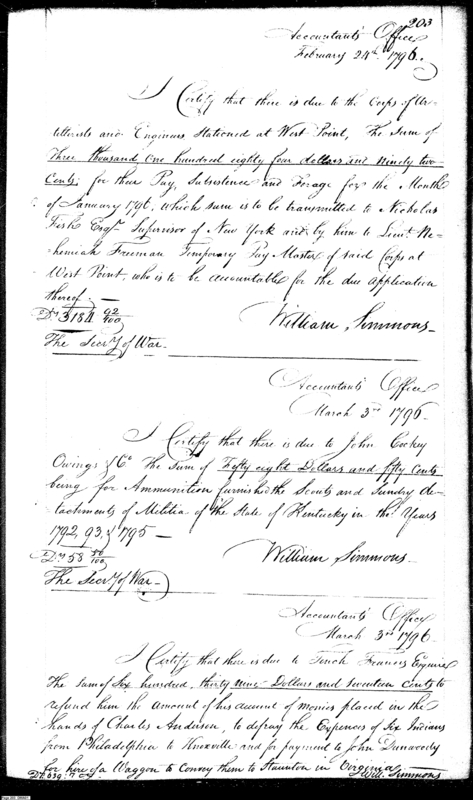 203
Accountants Office
February 24th 1796.
I Certify that there is due to the Corps of Ar-
tillerists and Engineers Stationed at West Point, The Sum of
Three thousand One hundred eighty four dollars and Ninety two
Cents for their Pay, Subsistence and Forage for the Month
of January 1796, which sum is to be transmitted to Nicholas
Fish Esqr. Supervisor of New York and by him to Lieut. Ne-
hemiah Freeman Temporary Pay Master of said Corps at
West Point, who is to be accountable for the due Application
thereof. —
Ds 3184 92/100
William Simmons
The Secry of War
Accountants Office
March 3rd 1796
I Certify that there is due to John Cockey
Owings & Co. The Sum of Fifty eight Dollars and fifty Cents
being for Ammunition furnished the Scouts and Sundry de-
tachments of Militia of the State of Kentucky in the Years
1792, 93, & 1795 —
Ds 58 50/100
William Simmons
The Secry of War
Accountants Office
March 3rd 1796
I Certify that there is due to Tench Francis Esquire
The Sum of Six hundred, thirty nine Dollars and seventeen Cents to
refund him the Amount of his account of monies placed in the
hands of Charles Andersen, to defray the Expences of Six Indians
from Philadelphia to Knoxville and for payment to John Dunwoody
for hire of a Waggon to Convey them to Staunton in Virginia.
Ds 639:
Will. Simmons